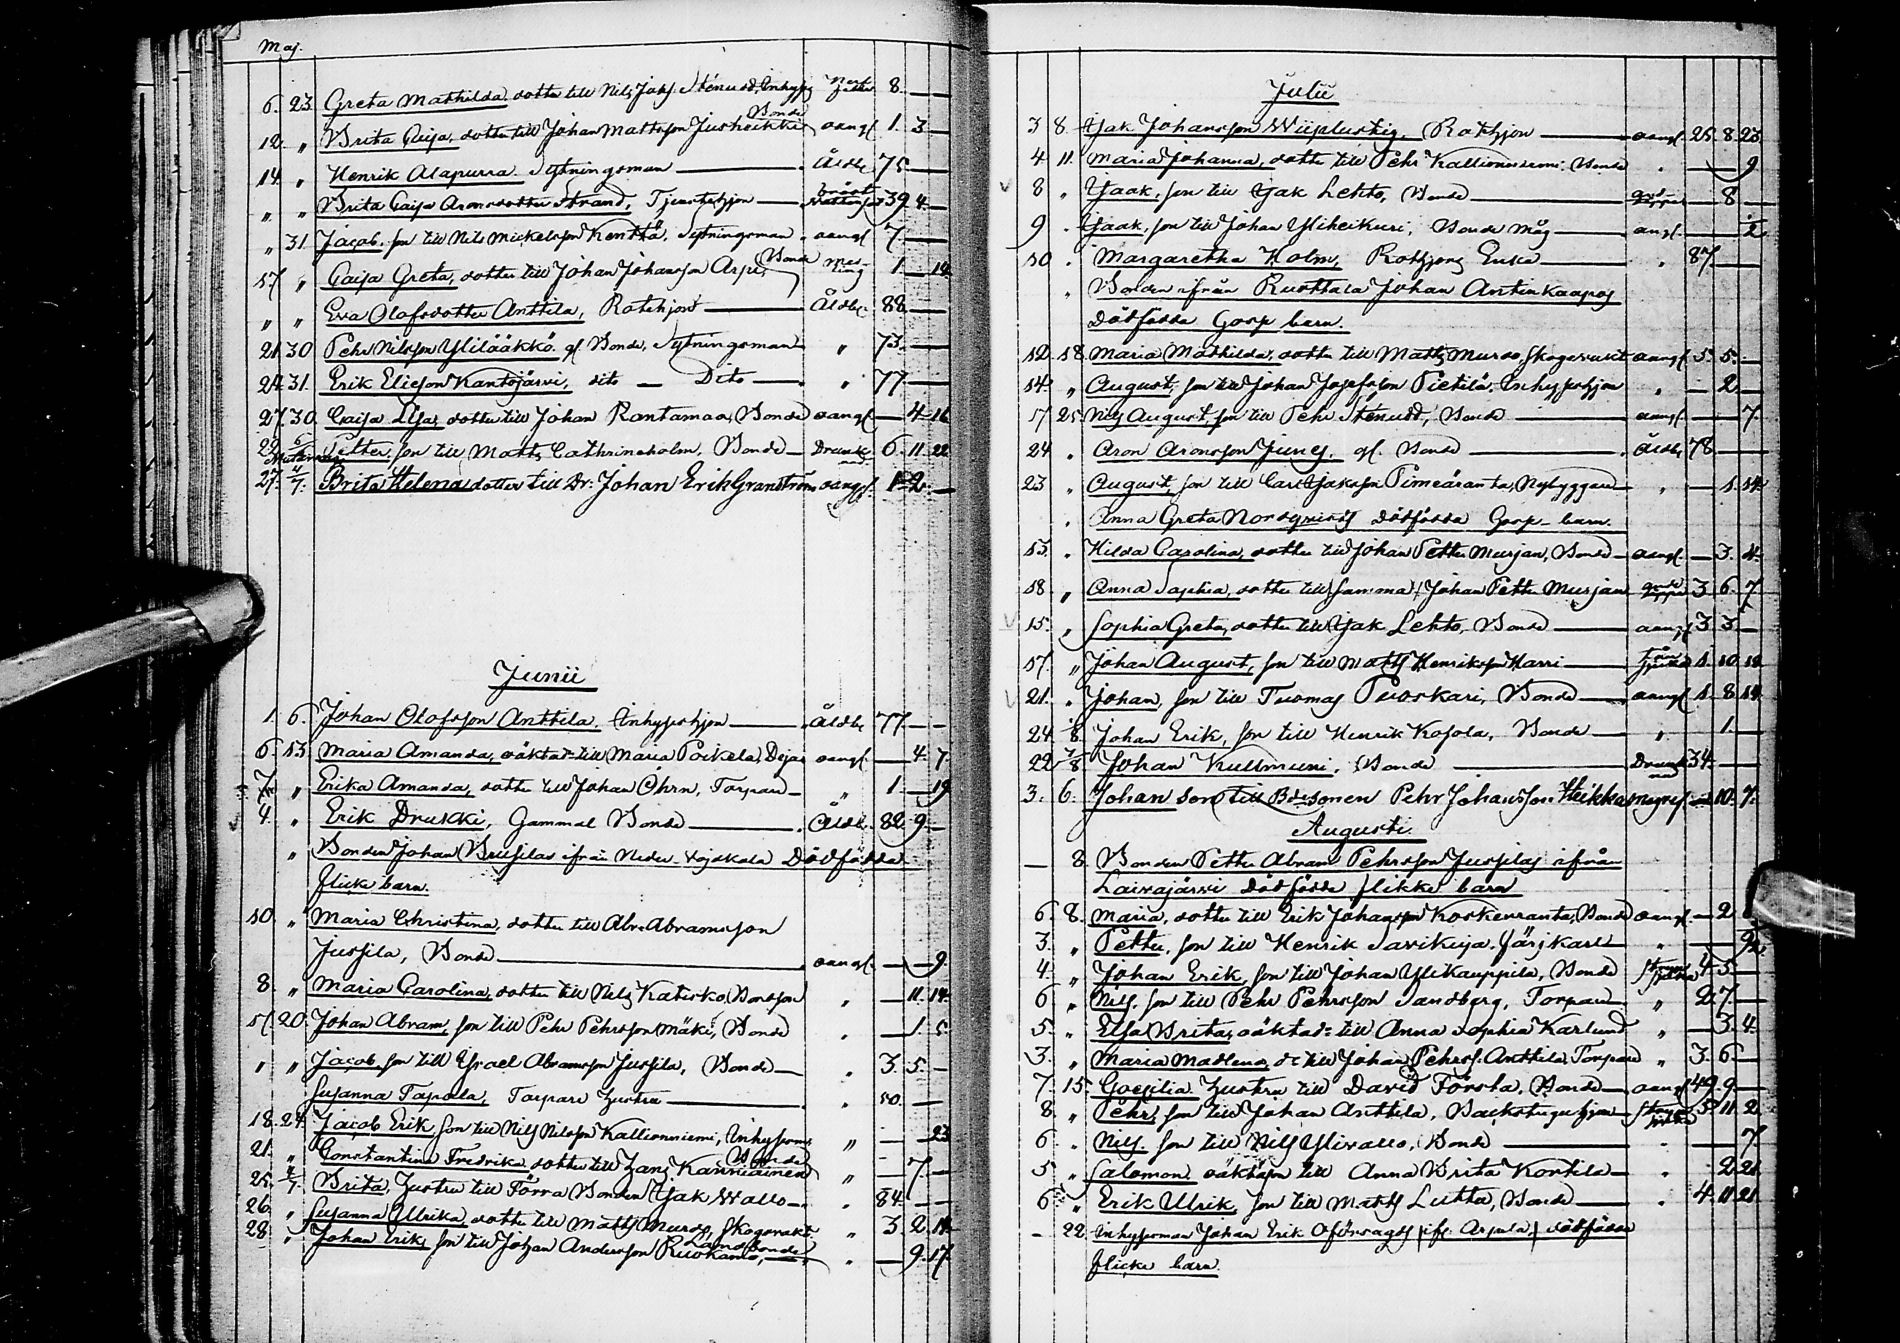 Maj.
6. 23. Greta Mathilda, dotter till Nils Joh: Stenudd, Inhyss 8. — —
12. „ Brita Caisa, dotter till Johan Mattsson Juskeikki Bonde oangf. 1. 3. —
14. „ Henrik Alapurra. Sytningsman — Åldd. 75. — —
„ „ Brita Caisa Aronsdotter Strand, Tjenstehjon — 39 4. —
„ 31. Jacob, son till Nils Mickelsson Kenttä, Sytningsman oangf. 7. — —
17. „ Caisa Greta, dotter till Johan Johansson Arpi, Bonde 1. — 14.
„ „ Eva Olofsdotter Anttila, Rotehjon — Åldd. 88. — —
21. 30. Pehr Nilsson Ylilääkkö gl Bonde, Sytningsman „ 73. — —
24. 31. Erik Ericson Kantojärvi, dito — Dito — „ 77 — —
27. 30. Caisa Lisa, dotter till Johan Rantamaa, Bonde oangf. — 4. 16
22. 6/ Petter, son till Matts Cathrineholm, Bonde — Drunk- nad 6. 11. 22
27. 4/7. Brita Helena dotter till Dr: Johan Erik Granström oangf. 1. 2. —
Junii
1. 6. Johan Olofsson Anttila, Inhyseshjon — Åldd. 77. — —
6. 13. Maria Amanda, oäkta dr till Maria Poikela, Deja oangf. — 4. 7
7. „ Erika Amanda, dotter till Johan Ohrn, Torpare — „ 1. — 19
4. „ Erik Drukki, Gammal Bonde — Åldd. 82. 9. —
„ Bonden Johan ifrån Neder-Wojakala Dödfödda
flicke barn.
10. „ Maria Christina, dotter till Abr: Abramsson
Jussila, Bonde — oangf. — — 9.
8. „ Maria Carolina, dotter till Nils Katisko, Bondson . — 11. 14.
17. 20. Johan Abram, son till Pehr Pehrsson Mäki, Bonde . — 1. 5.
„ „ Jacob, son till Israel Abramsson Jussila, Bonde — . 3. 5. —
Susanna Tapola, Torpare Hustru — . 50. —
18. 24. Jacob Erik, son till Nils Nilsson Kallioniemi, Inhysesm. „ — — 23
21. „ Constantina Fredrika, dotter till Hans Kanniainen Bonde „ — 7. —
25. 4/7 Brita, Hustru till Förra Bonden Isak Wallo — . 84. —
26. „ Susanna Ulrika, dotter till Matts Murdo, Skogsvakt. „ 3. 2. 14.
28. „ Johan Erik, son till Johan Andersson Ruokamo, Landbonde . — 9. 17.
Julii
3 8. Isak Johansson Wiiplustig, Rotehjon — oangf. 25. 8. 23.
4 11. Maria Johanna, dotter till Pehr Kallioniemi Bonde . — — 9
8 . Isaak, son till Isak Lehto, Bonde — — 8 —
9 . Isaak, son till Johan Yliheikuri, Bonde Måg — angf. — — ½
10 . Margaretha Holm, Rothjons Enka — . 87. — —
„ Bonden ifrån Ruottala Johan Antinkaapos
Dödfödda Goss barn.
12. 18. Maria Mathilda, dotter till Matts Murdo, Skogsvakt oangf. 5. 5. —
14. „ August, son till Johan Josefsson Pietilä, Inhyseshjon „ — 2. —
17 25. Nils August, son till Pehr Stenudd, Bonde — oangf. — — 7.
24 . Aron Aronsson Juneş, gl. Bonde — Åldd. 78. — —
23 „ August, son till Carl Isaksson Pimeäranta, Nybyggare „ — 1. 14.
. Anna Greta Nordqvists Dödfödda Goss-barn.
13. . Hilda Carolina, dotter till Johan Petter Murjan, Bonde — oangf. — 3. 4.
18 „ Anna Sophia, dotter till samma, Johan Petter Murjan 3 6. 7.
15. „ Sophia Greta, dotter till Isak Lehto, Bonde — oangf. 3 3. —
17. „ Johan August, son till Matts Henriksson Harri — 1. 10. 12
21. „ Johan, son till Tuomas Puoskari, Bonde — oangf. 1 8 14.
24 1/8. Johan Erik, son till Henrik Kosola, Bonde — „ — 1. —
22 7/8 Johan Kullmuni. Bonde — Drunk nad 34. — —
3. 6. Johan son till Bdesonen Pehr Johansson Heikka — 10. 7.
Augusti
— 8. Bonden Petter Abram Pehrsson Jussilas ifrån
Laivajärvi Dödfödde flikke barn
6. 8. Maria, dotter till Erik Johansson Koskenranta, Bonde oangf. — 2
3. „ Petter, son till Henrik Savikuja. Färjkarl — „ — — 9½
4. „ Johan Erik, son till Johan Ylikauppila, Bonde 4. 5. —
6 „ Nils, son till Pehr Pehrsson Sandberg, Torpare — „ 2. 7. —
5. „ Elsa Brita, oäkta dr till Anna Sophia Karlund „ — 3. 4.
3. „ Maria Madlena, dr till Johan Pehrss. Anttila Torpare „ 3. 6 —
7. 15. Gocilia Hustru till David Första, Bonde — oangf. 49. 9. —
8. „ Pehr, son till Johan Anttila, Backstuguhjon 5. 11. 2.
6. . Nils. son till Nils Ylivallo, Bonde — . — 7.
5 „ Salomon oäkta son till Anna Brita Kortila — . 2 21
6 „ Erik Ulrik, son till Matts Luhta, Bonde — . 4. 11. 21.
— 22. Inhysesman Johan Erik Oförsagds ifr. Arpela, dödfödda
flicke barn.